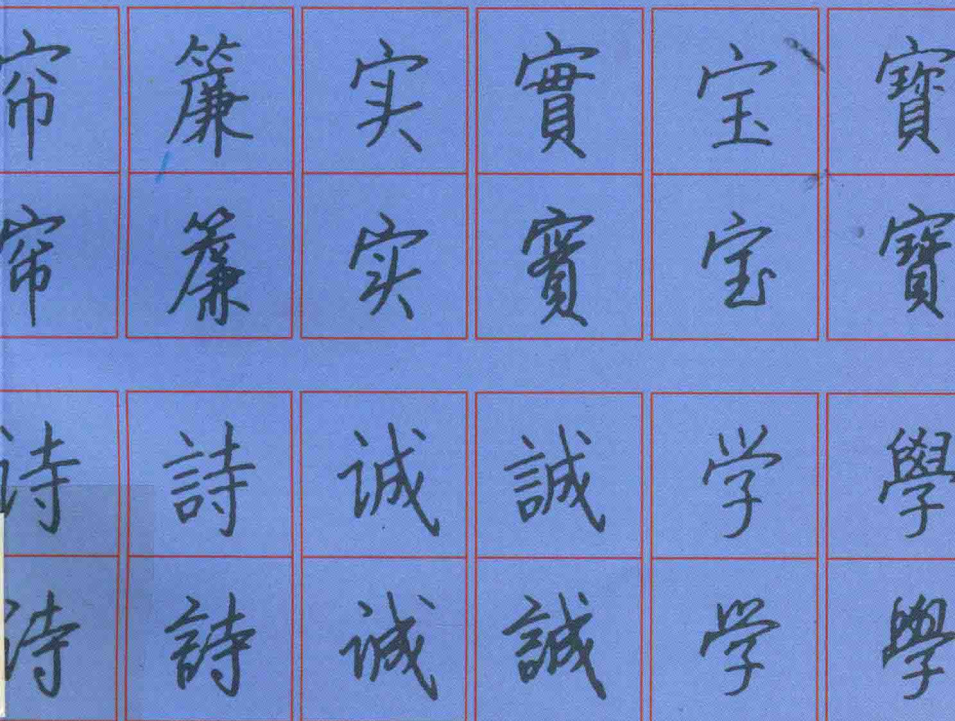 帘 簾 实 實 宝 寳
帘 簾 实 實 宝 寳
诗 詩 诚 誠 学 學
诗 詩 诚 誠 学 學